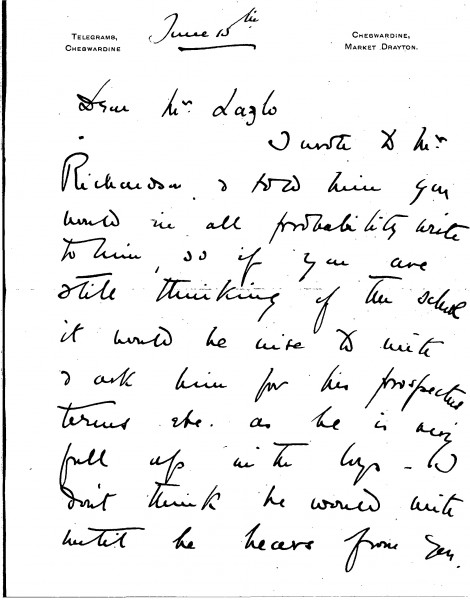 Telegrams,
Chegwardine
June 15th
Chegwardine,
Market Drayton.
Dear Mr. Lazlo
I wrote to Mr
Richardson & told him you
would in all probability write
to him, so if you are
still thinking of the school
it would be wise to write
& ask him for his prospectus
terms etc. as he is very
full up in the
don't think he would write
until he hears from you.